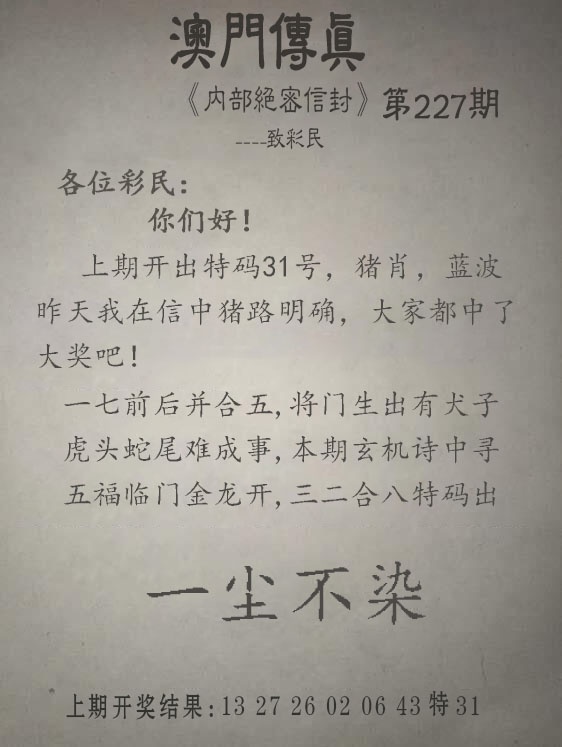 澳門傳真
《内部絕密信封》第227期
----致彩民
各位彩民：
你们好！
上期开出特码31号，猪肖，蓝波
昨天我在信中猪路明确，大家都中了
大奖吧！
一七前后并合五,将门生出有犬子
虎头蛇尾难成事,本期玄机诗中寻
五福临门金龙开,三二合八特码出
一尘不染
上期开奖结果:13 27 26 02 06 43 特31